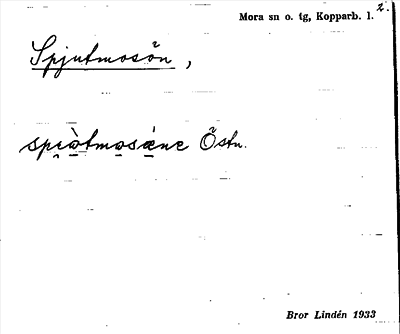 2.
Mora sn o. tg, Kopparb. l.
Spjutmosön,
spi̯ò̱tmo̱sǽ̱ne Östn.
Bror Lindén 1933